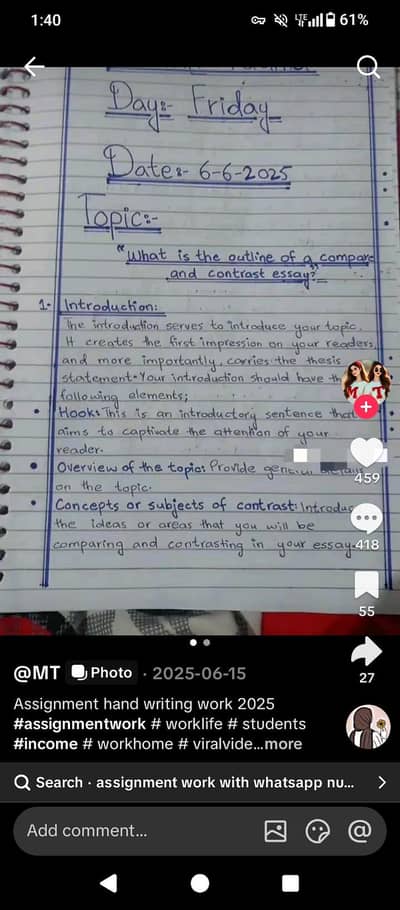 1:40
LTE 61%
Day:- Friday
Date:- 6-6-2025
Topic:-
"What is the outline of a compare
and contrast essay?"
1. Introduction:
The introduction serves to introduce your topic.
It creates the first impression on your readers,
and more importantly, carries the thesis
statement. Your introduction should have th
following elements;
• Hook: This is an introductory sentence that
aims to captivate the attention of your
reader.
• Overview of the topic: Provide
on the topic.
• Concepts or subjects of contrast: Introduc
the ideas or areas that you will be
comparing and contrasting in your essay.
459
418
55
27
@MT Photo · 2025-06-15
Assignment hand writing work 2025
#assignmentwork # worklife # students
#income # workhome # viralvide...more
Search · assignment work with whatsapp nu...
Add comment...